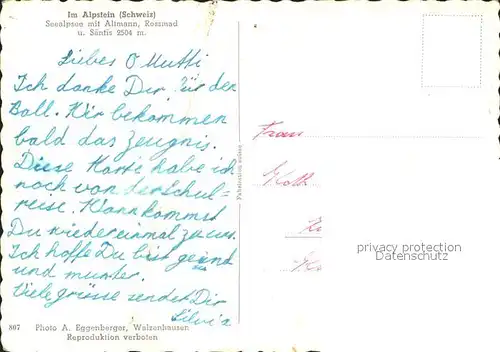 Im Alpstein (Schweiz)
Seealpsee mit Altmann, Rossmad
u. Säntis 2504 m.
Liebes O Mutti
Ich danke Dir für den
Ball. Wir bekommen
bald das Zeugnis.
Diese Karte habe ich
noch von der Schul-
reise. Wann kommst
Du wiedereinmal zu uns.
Ich hoffe Du bist gesund
und munter.
Viele grüsse sendet Dir
Silvia
807 Photo A. Eggenberger, Walzenhausen
Reproduktion verboten
Frau
privacy protection
oldthing.com